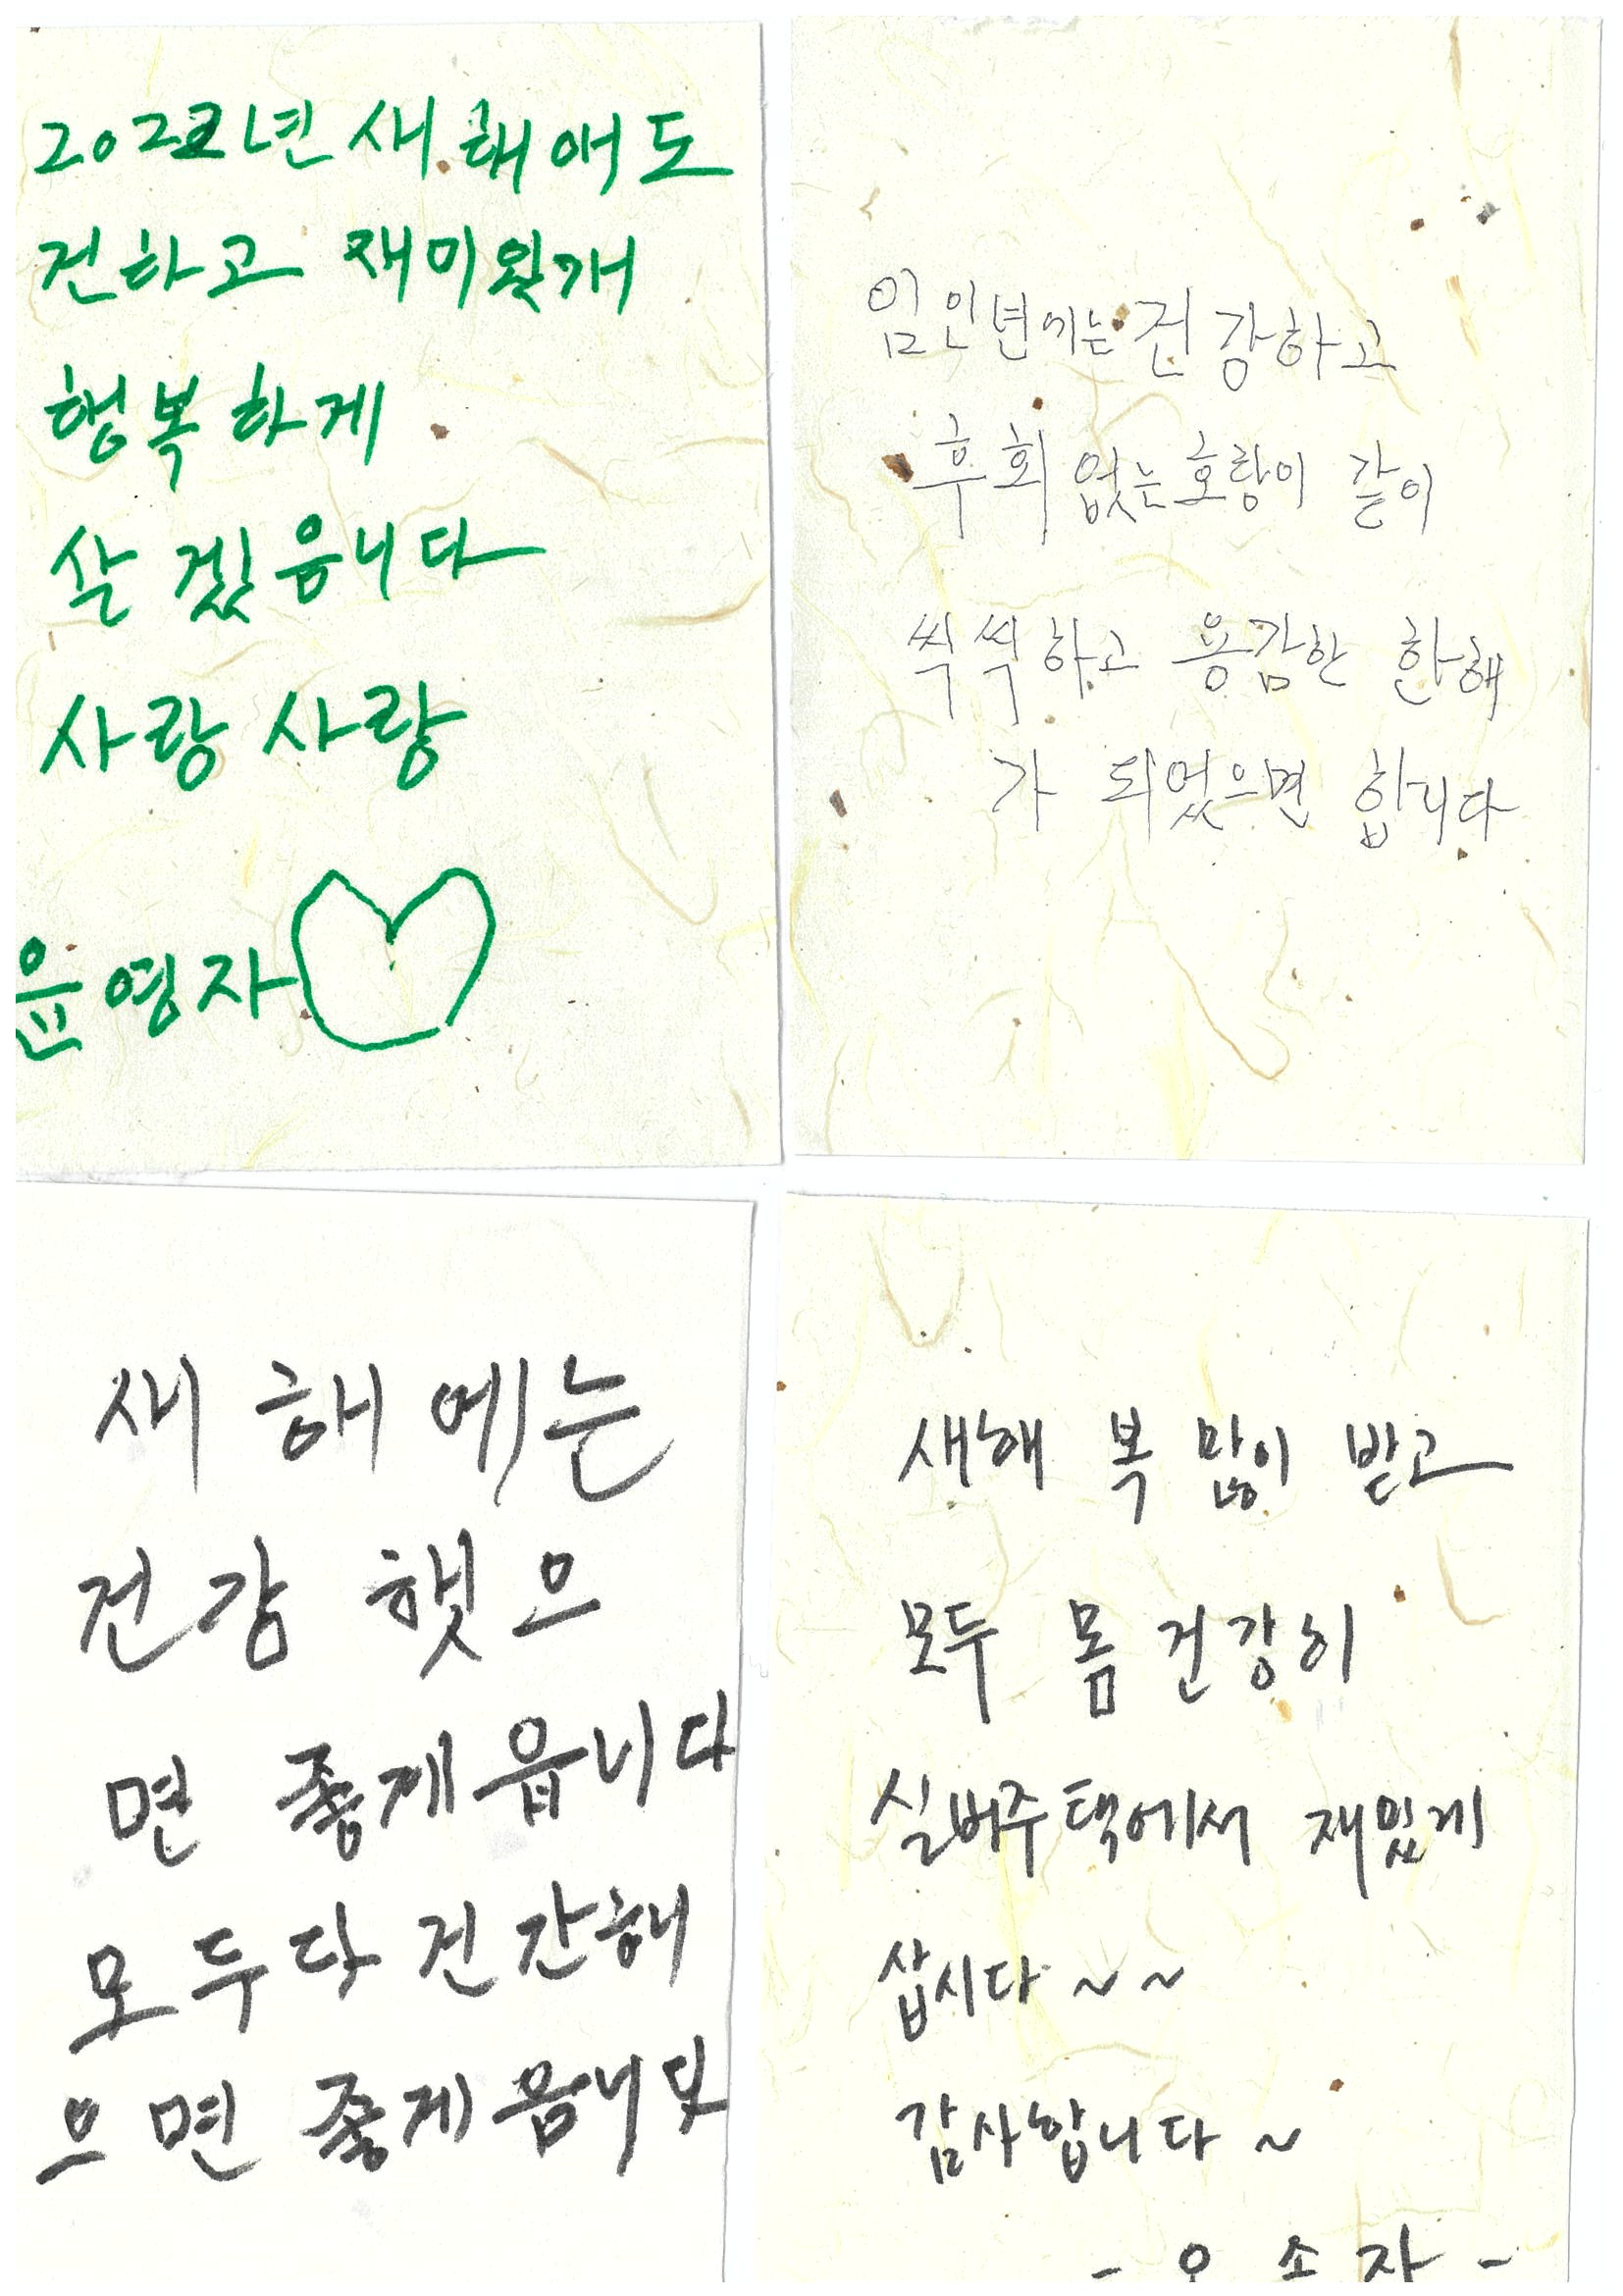 2022년 새해애도
건하고 재미있개
행복하게
살겠읍니다
사랑 사랑
윤영자
임인년에는 건강하고
후회 없는 호랑이 같이
씩씩하고 용감한 한해
가 되었으면 합니다
새해에는
건강 햇으
면 좋게읍니다
모두다 건간해
으면 좋게읍니다
새해 복 많이 받고
모두 몸 건강히
실버주택에서 재밌게
삽시다 ~ ~
감사합니다 ~
- 오 소 자 -